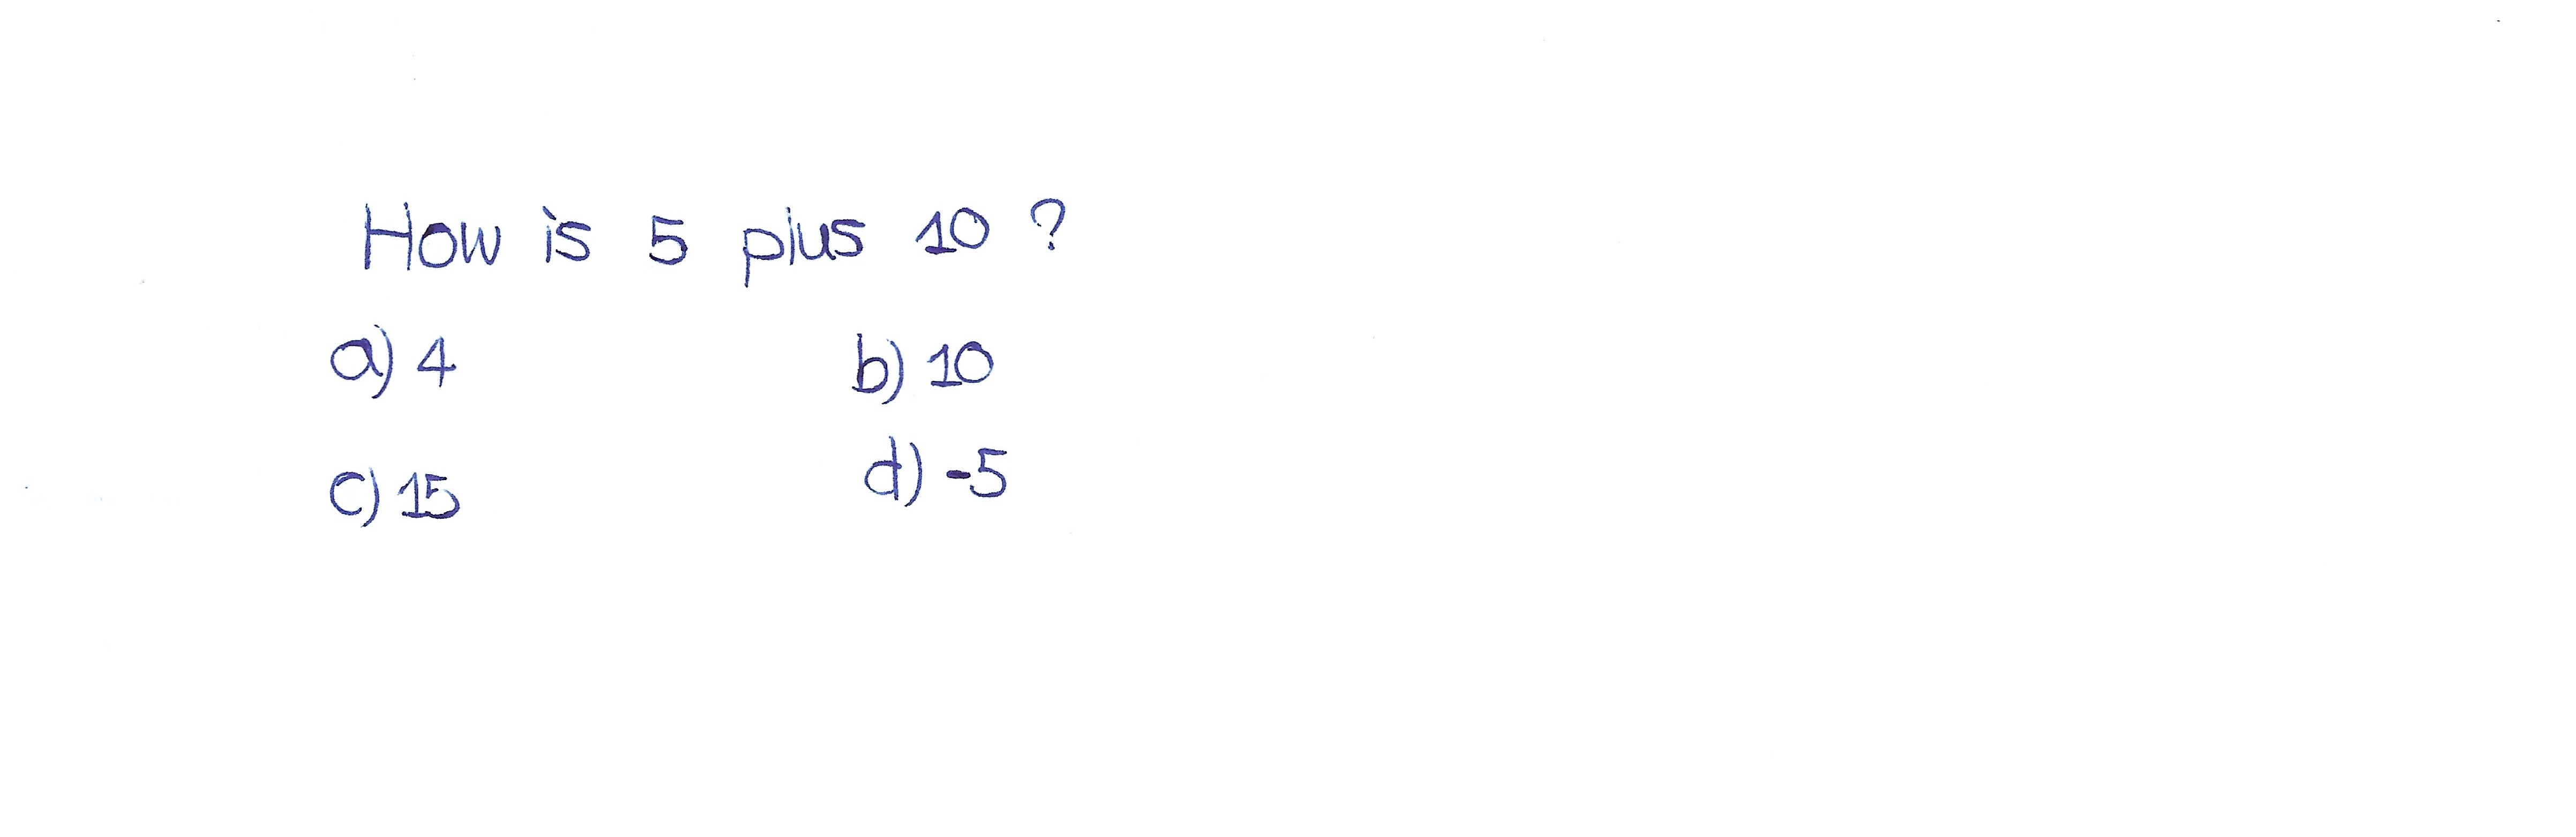 How is 5 plus 10 ?
a) 4 b) 10
c) 15 d) -5